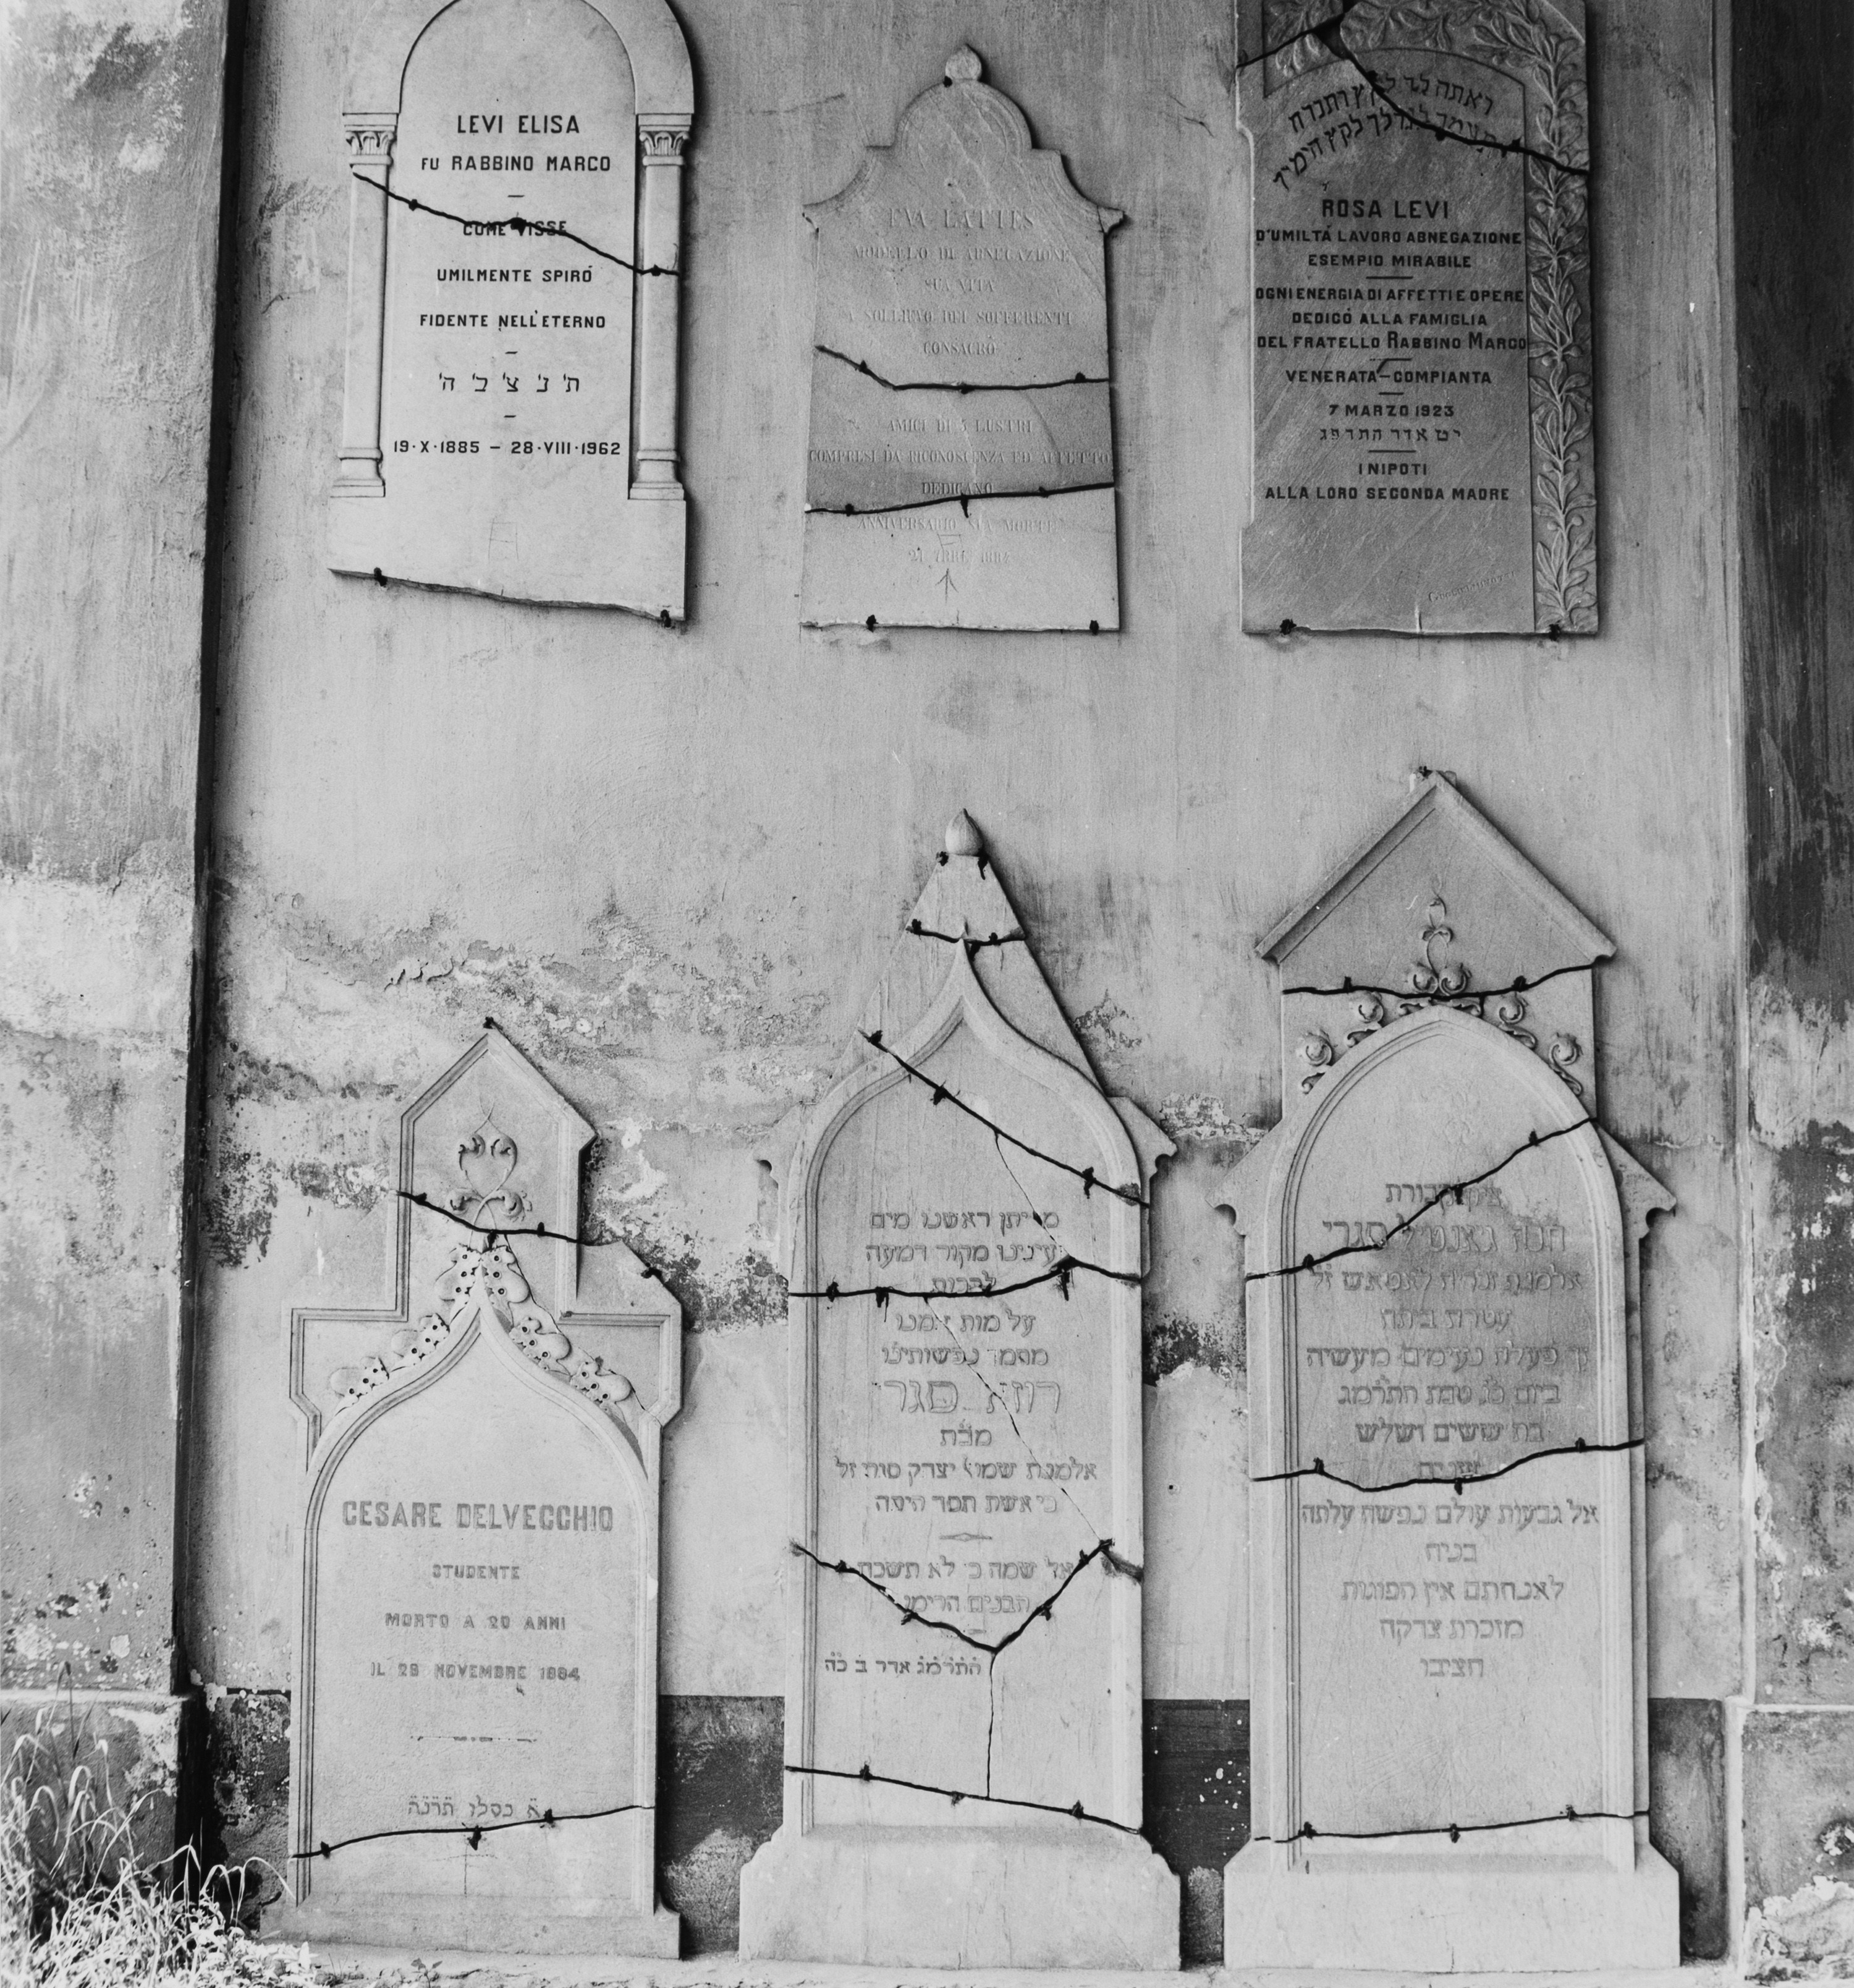 LEVI ELISA
FU RABBINO MARCO
COME VISSE
UMILMENTE SPIRÓ
FIDENTE NELL'ETERNO
ת' נ' צ' ב' ה'
19·X·1885 – 28·VIII·1962
EVA LATTES
MODELLO DI ABNEGAZIONE
SUA VITA
A SOLLIEVO DEI SOFFERENTI
CONSACRÒ
AMICI DI 3 LUSTRI
COMPRESI DA RICONOSCENZA ED AFFETTO
DEDICANO
ANNIVERSARIO SUA MORTE
לקץ הימין
ROSA LEVI
D'UMILTÁ LAVORO ABNEGAZIONE
ESEMPIO MIRABILE
OGNI ENERGIA DI AFFETTI E OPERE
DEDICÓ ALLA FAMIGLIA
DEL FRATELLO RABBINO MARCO
VENERATA–COMPIANTA
7 MARZO 1923
יט אדר התרפג
I NIPOTI
ALLA LORO SECONDA MADRE
CESARE DELVECCHIO
STUDENTE
MORTO A 20 ANNI
IL 28 NOVEMBRE 1884
כסלו תרמה
מי יתן ראשנו מים
עינינו מקור דמעה
לבכות
על מות אמנו
מחמד נפשותינו
רוזא סגרי
מבת
אלמנת שמואל יצחק סגרי זל
כי אשת חסד היתה
שמה כי לא תשכח
התרמג אדר ב כה
ציון קבורת
חנה סגרי
אלמנת
עטרת ביתה
פעלה נעימים מעשיה
ביום טבת התרמג
בת ששים ושלש
שנים
אל גבעות עולם נפשה עלתה
בניה
לאנחתם אין הפוגות
מזכרת צדקה
הציבו